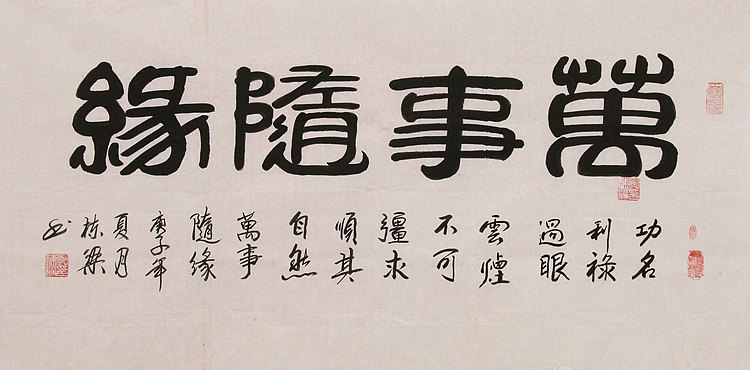 萬事隨緣
功名
利祿
過眼
雲煙
不可
彊求
順其
自然
萬事
隨緣
庚子年
夏月
栋梁
书